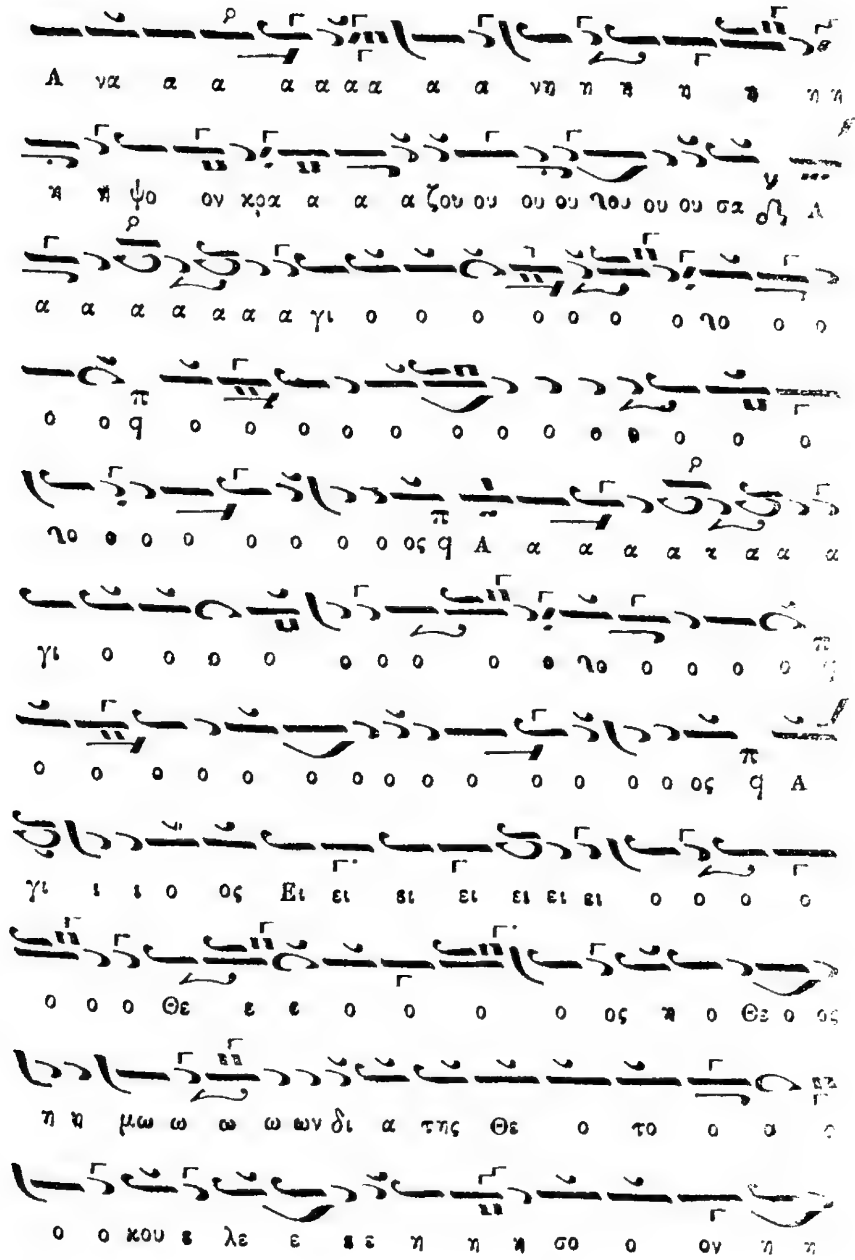 Α να α α α α α α α α νη η η η η η η
η η ψο ον κρα α α α ζου ου ου ου λου ου ου σα Α
α α α α α α α γι ο ο ο ο ο ο ο λο ο ο
ο ο π q ο ο ο ο ο ο ο ο ο ο ο ο ο ο
λο ο ο ο ο ο ο ο ος π q Α α α α α α α α α
γι ο ο ο ο ο ο ο ο ο λο ο ο ο ο π q
ο ο ο ο ο ο ο ο ο ο ο ο ο ο ος π q Α
γι ι ι ο ος Ει ει ει ει ει ει ει ο ο ο ο
ο ο ο Θε ε ε ο ο ο ο ος η ο Θε ο ος
η η μω ω ω ω ων δι α της Θε ο το ο α ο
ο ο κου ε λε ε ε ε η η η σο ο ον η η